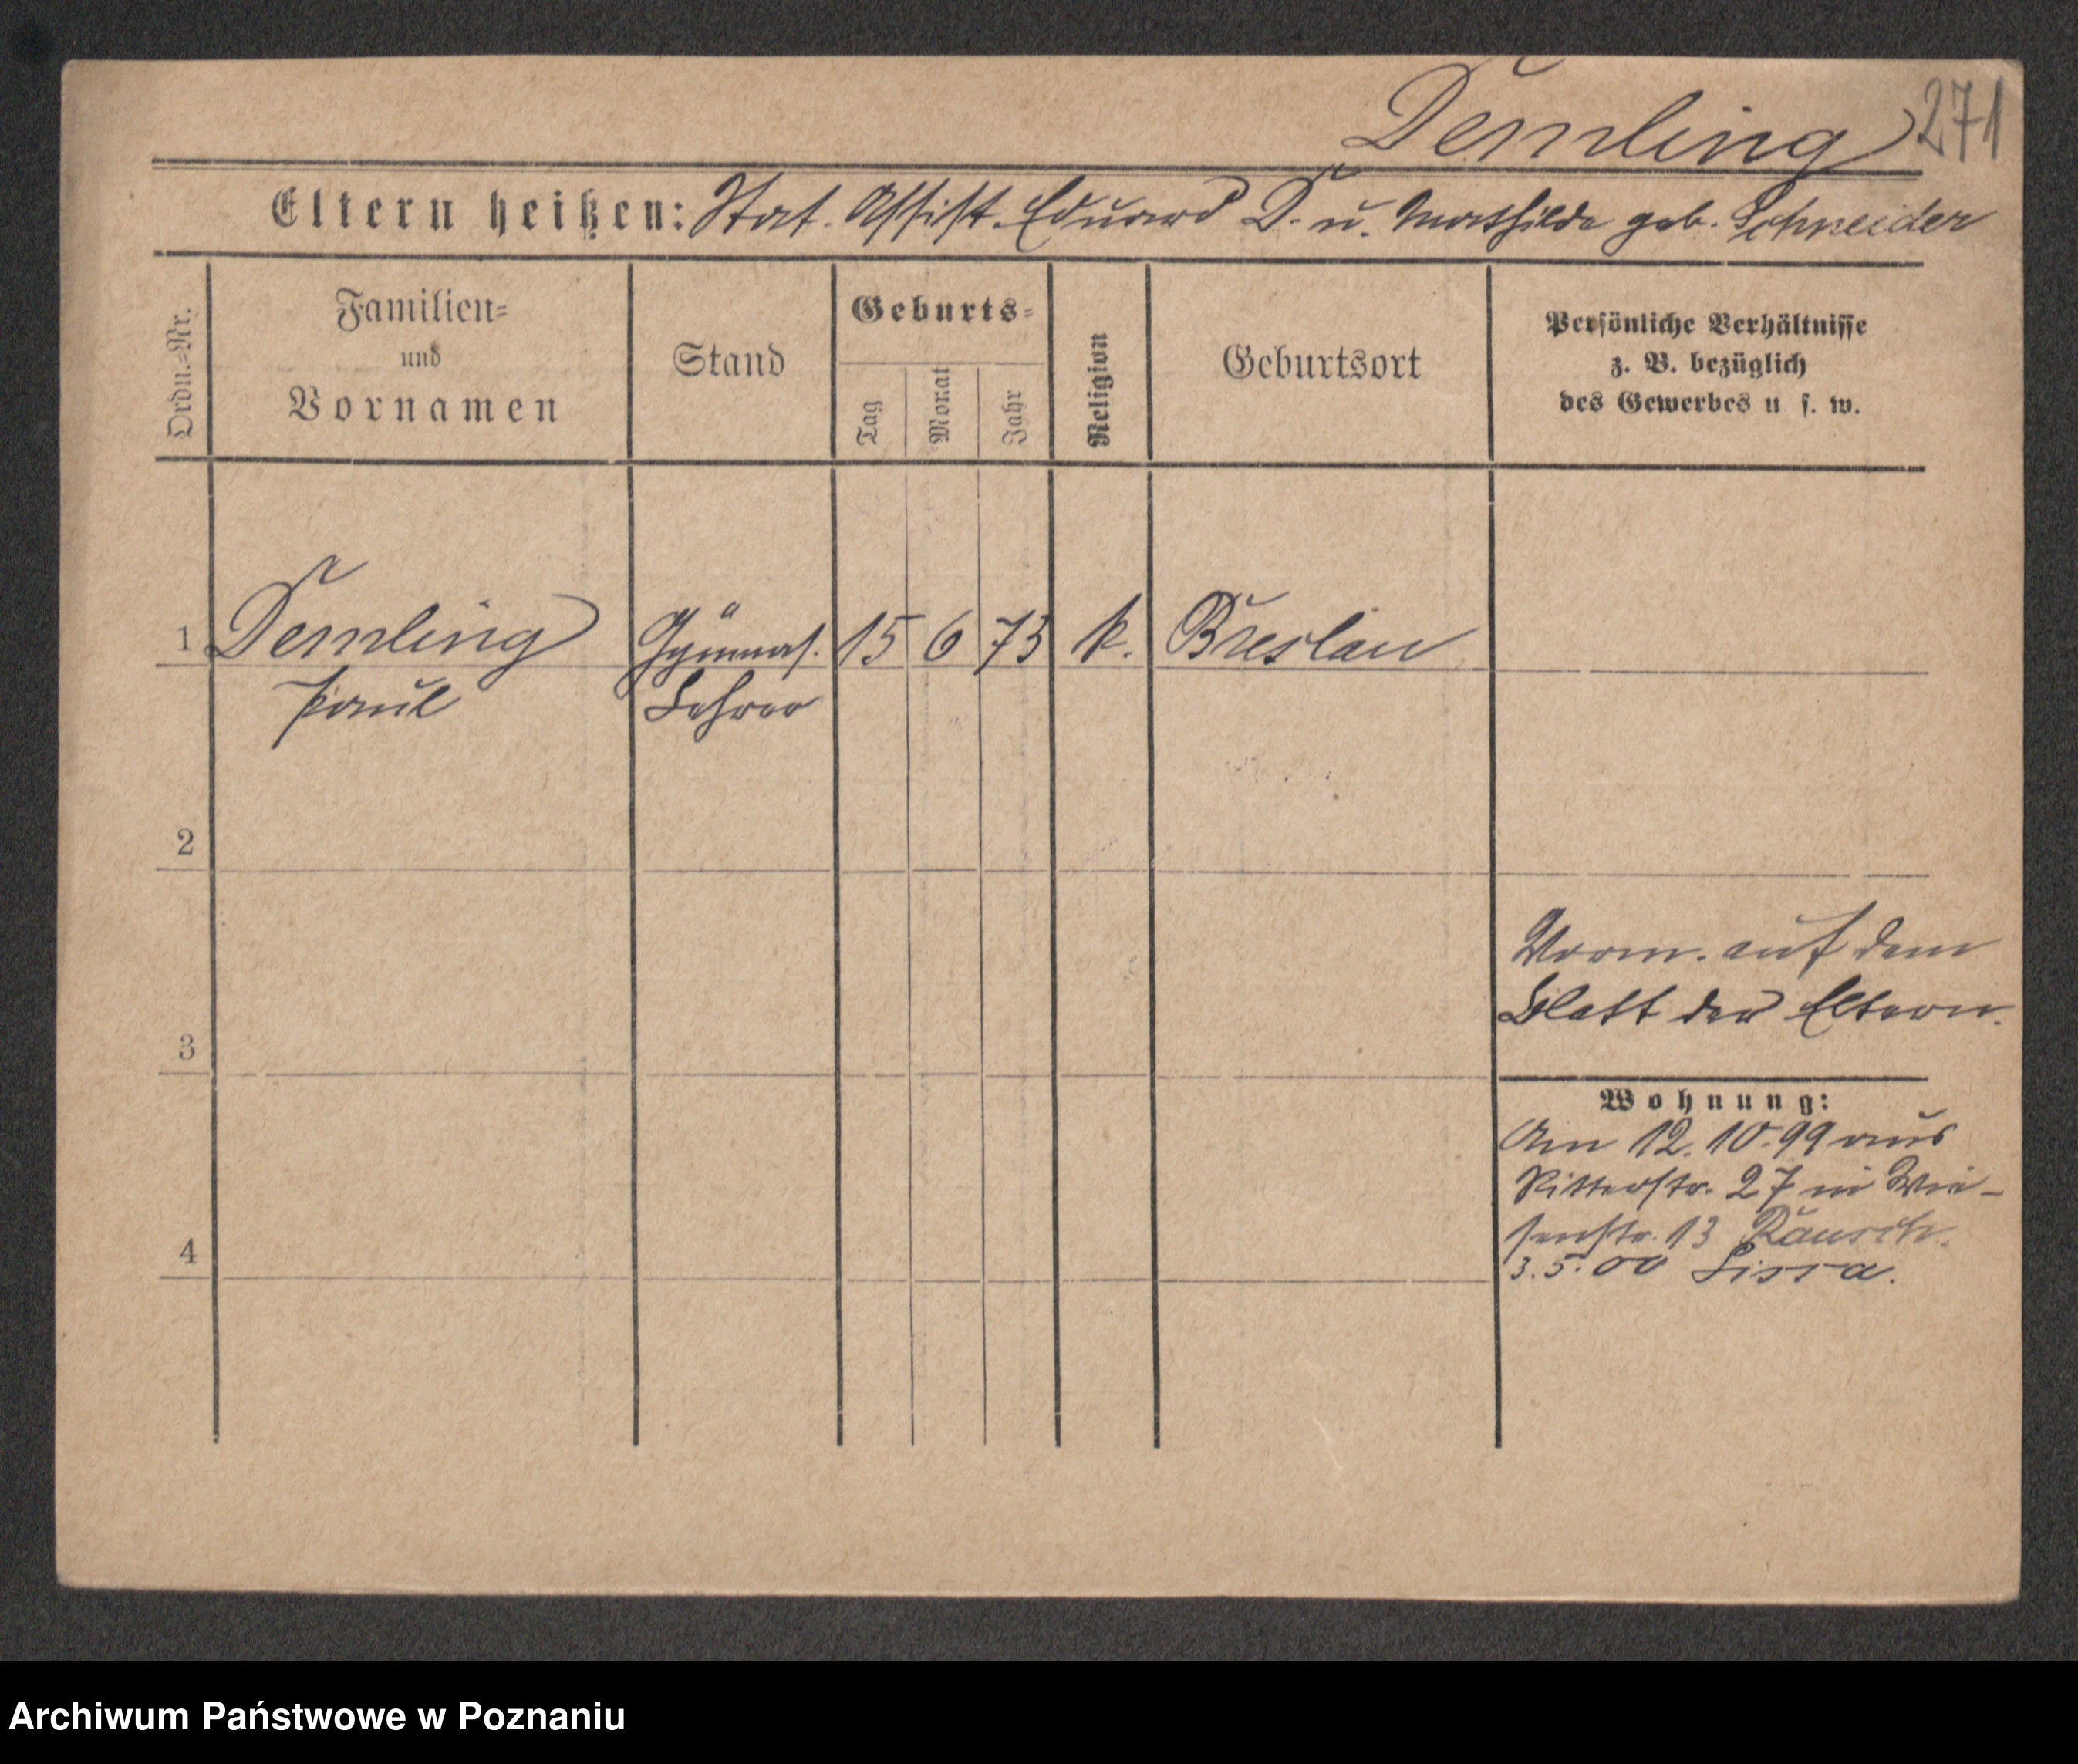 Demling 271
Eltern heißen: Stat. Assist. Eduard D. u. Mathilde geb. Schneider
Ordn.=Nr.
Familien=
und
Vornamen
Stand
Geburts=
Tag
Monat
Jahr
Religion
Geburtsort
Persönliche Verhältnisse
z. B. bezüglich
des Gewerbes u s. w.
1 Demling Gymnas. 15 6 73 k. Breslau
Paul Lehrer
2
Verm. auf dem
Blatt der Eltern.
3
Wohnung:
Am 12.10.99 aus
Ritterstr. 27 in Wie-
senstr. 13 Rausch.
4
3.5.00 Lissa.
Archiwum Państwowe w Poznaniu